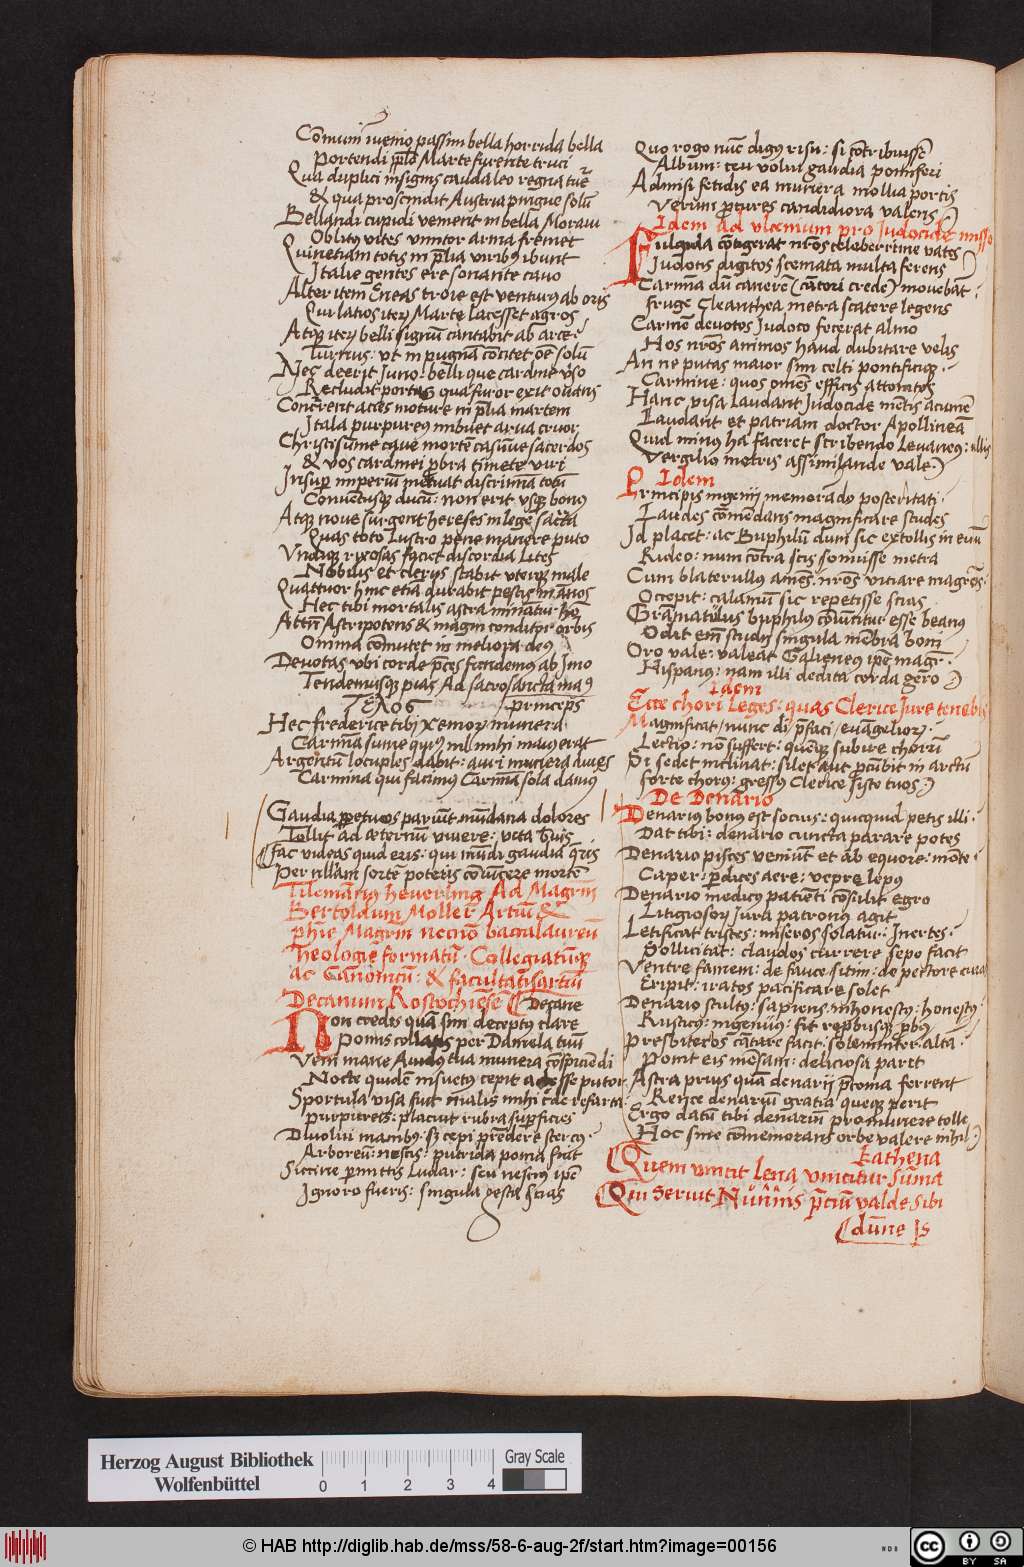 passim bella horrida bella
Portendi Marte furente truci
Qua duplici insignis cauda leo regna
& qua proscindit Austria pingue solū
Bellandi cupidi venient in bella Moraui
Oblitus vites vinitor arma fremet
Quinetiam totis in p̄lia viribus ibunt
Italie gentes ere sonante cauo
Alter item Eneas troie est venturus ab oris
Qui latios Marte lacesset agros
Atq belli signū cantabit ab arce
Turnus: vt in pugnā cōcitet oē solū
Nec deerit Juno: belli que cardine v̓so
Recludit portas qua furor exit ouans
Concurrent acies in p̄lia martem
Itala purpureus imbuet arua cruor
Christi sum̄e caue mortē casūue sacerdos
& vos cardinei timete viri
Insup imperiū metuat discrimina totū
Conuētusq ducū: non erit vsq bonus
Atq noue surgent hereses in lege sacrata
Quas toto Lustro pene manere puto
Vndiq rixosas faciet discordia Lites
Nobilis et clerus stabit vterq male
Quattuor hinc etiā durabit pestis in ānos
Hec tibi mortalis astra minātur hō
Attn̄ Astripotens & magni conditor orbis
Omnia cōmutet in meliora deus
Deuotas vbi corde p̄ces fundemus ab Imo
Tendemusq pias Ad sacrosancta man9
Τέλος princeps
Hec frederice tibi munera
Carmīa sume mihi maius erat
Argentū locuples dabit: auri munera diues
Carmina qui facimus Carmīa sola damus
Gaudia ppetuos pariūt mūdana dolores
Tollit ad æternū viuere: victa
Fac videas quid eris: qui mūdi gaudia q̄ris
Per nullam sortē poteris cōuīcere mortē
Tilemānus heuerling Ad Magrm̄
Bertoldum Moller Artiū &
phie Magrm̄ necnō baccalaureū
Theologie formatū. Collegiatūq
ac Canonicū: & facultatis artiū
Decanum Rostochiēsē Decane
Non credis quā sim deceptus clare
Pomis collatis per Daniela tuū
Veni mane tua munera
Nocte quidē insuetus cepit adesse putor
Sportula visa fuit mihi refarta
Purpureis: placuit rubra supficies
Diuolui manibus: s; cepi p̄ndere stercus
Arboreū: nescis: putrida poma fuāt
Siccine p̄mittis Ludar: seu nescius ip̄e
Ignoro fueris: singula gesta scias
Quo rogo nūc dignus risu: si cōtribuissē
Album: ceu volui gaudia pomiferi
Admisi fetidis ea munera mollia portis
Verum p̄ctures candidiora valens
Idem Ad vlcenium pro Judocide misso
Fulgida cōtigerat nr̄os celeberrime vates
Judocis digitos scemata multa ferens
Carmīa dū canerē (cātori crede) mouebāt
fruge Cleanthea metra scatere legens
Carmē deuotos Judoco fecerat almo
Hos nr̄os animos haud dubitare velis
An ne putas maior sim celti pontificiq
Carmine: quos om̄es efficis attonitos
Hanc visa Laudant Judocide mētis acumē
Laudant et patriam doctor Apollineā
Quid minus ha faceret scribendo Leuaneus: illis
Vergilio metris assimilande vale
Idem
Principis ingenii memorādo posteritati
Laudes cōmēdans magnificare studes
Id placet: ac Buphilū dum sic extollis in euū
Rideo: num cōtra scis sonuisse metra
Cum blaterullus amēs nr̄os vitiare magr̄os
Occepit: calamū sic repetisse scias
Grāmatulus buphilus cōuincitur esse beanus
Odit em̄ studii singula mēbra boni
Oro vale: valeat Galieneus ip̄e magr̄
Hispanus: nam illi dedita corda gero
Idem
Ecce chori Leges: quas Clerice Jure tenebis
Magnificat, nunc di, p̄faci, euāgelior
Lectio: nō suffert: quēq subire chorū
Pr̄ sedet inclinat: silet aut p̄cūbit in arctū
forte chorus: gressus Clerice siste tuos
De Denario
Denarius bonus est socius: quicquid petis illi
Dat tibi: denario cuncta parare potes
Denario pisces veniūt et ab equore: mōte
Caper: p̄dices aere: vepre lepus
Denario medicus patiēti cōsulit egro
Litigiosor Jura patronus agit
Letificat tristes: miseros solatur: Inertes
Sollicitat: claudos currere sepe facit
Ventre famem: de fauce sitim: de pectore curas
Eripit: iratos pacificare solet
Denario stultus: sapiens: inhonestus: honestus
Rusticus: ingenuus: fit reprobusq probus
Presbiteros cātare facit: solemniter alta
Ponit eis mēsam: deliciosa parit
Astra prius quā denarii p̄conia ferrent
Rerice denariū gratia queq perit
Ergo datū tibi denariū pro munere tolle
Hoc sine cōmemorans orbe valere nihil
kathena
Quem vincit lena vincitur suma
Qui seruit Nūmis p̄ciū valde sibi
dūne Is
Herzog August Bibliothek
Wolfenbüttel
0 1 2 3 4
Gray Scale
© HAB http://diglib.hab.de/mss/58-6-aug-2f/start.htm?image=00156
cc BY SA